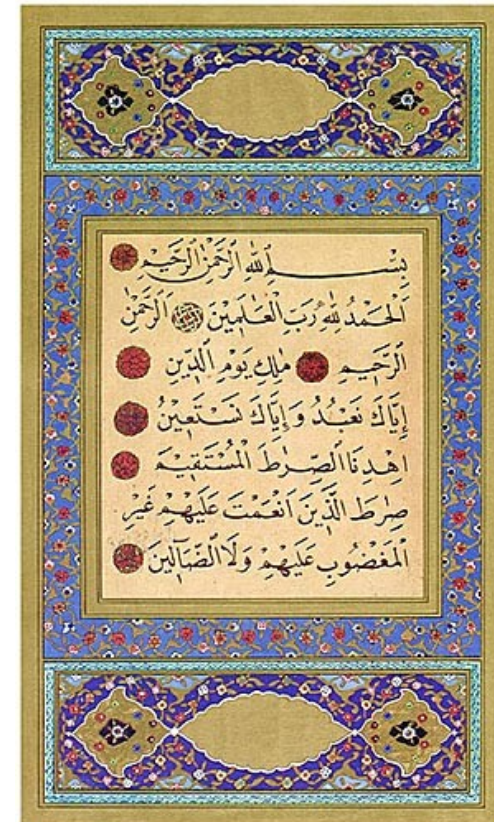 بِسْمِ اللهِ الرَّحْمٰنِ الرَّحِيمِ
اَلْحَمْدُ لِلهِ رَبِّ الْعَالَمِينَ اَلرَّحْمٰنِ
الرَّحِيمِ مٰلِكِ يَوْمِ الدِّينِ
إِيَّاكَ نَعْبُدُ وَإِيَّاكَ نَسْتَعِينُ
اِهْدِنَا الصِّرٰطَ الْمُسْتَقِيمَ
صِرٰطَ الَّذِينَ اَنْعَمْتَ عَلَيْهِمْ غَيْرِ
الْمَغْضُوبِ عَلَيْهِمْ وَلَا الضَّالِّينَ